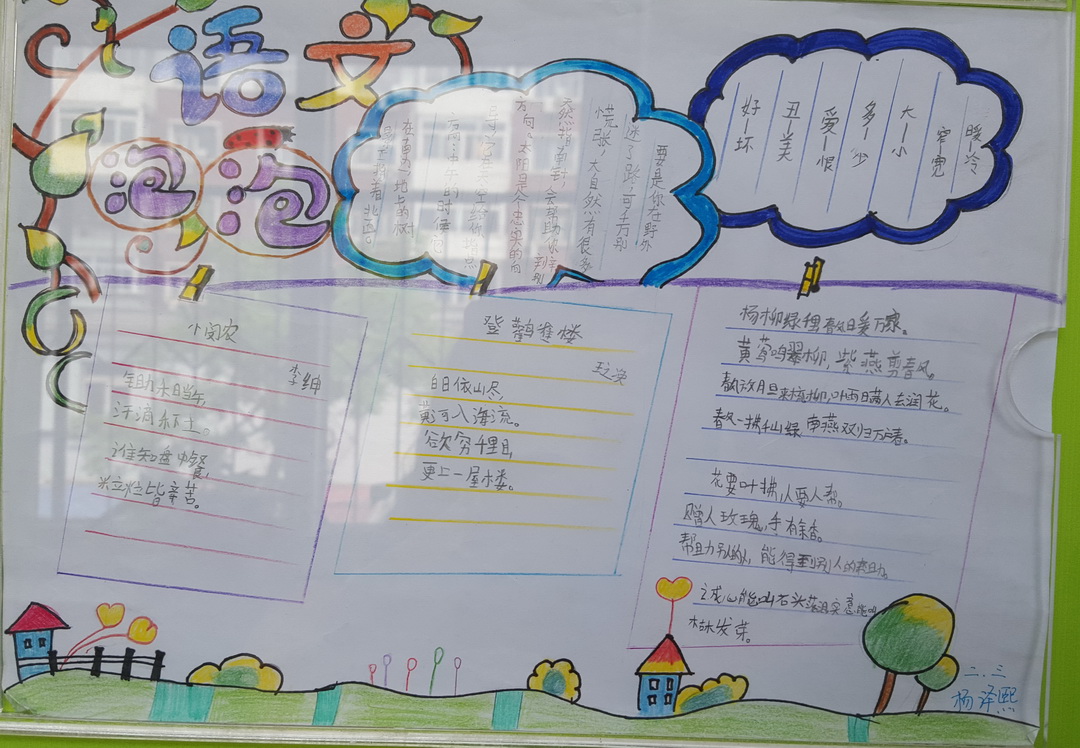 语文
泡泡
要是你在野外
迷了路,可千万别
慌张,大自然有很多
天然指南针,会帮助你辨别
方向。太阳是个忠实的向
导,它在天空给你指点
方向:中午的时候它
在南边,地上的树
影正指着北方
好—坏
丑—美
爱—恨
多—少
大—小
窄—宽
暖—冷
小闵农
李绅
锄禾日当午,
汗滴禾下土。
谁知盘中餐,
粒粒皆辛苦。
登鹳雀楼
白日依山尽,
黄河入海流。
欲穷千里目,
更上一层楼。
杨柳绿千里春风暖万家。
黄莺鸣翠柳,紫燕剪春风。
春风一拂千山绿 南燕双归万户春。
花要叶扶,人要人帮。
赠人玫瑰,手有余香。
帮助别的人,能得到别人的帮助。
枯木发芽。
二.三
杨泽熙